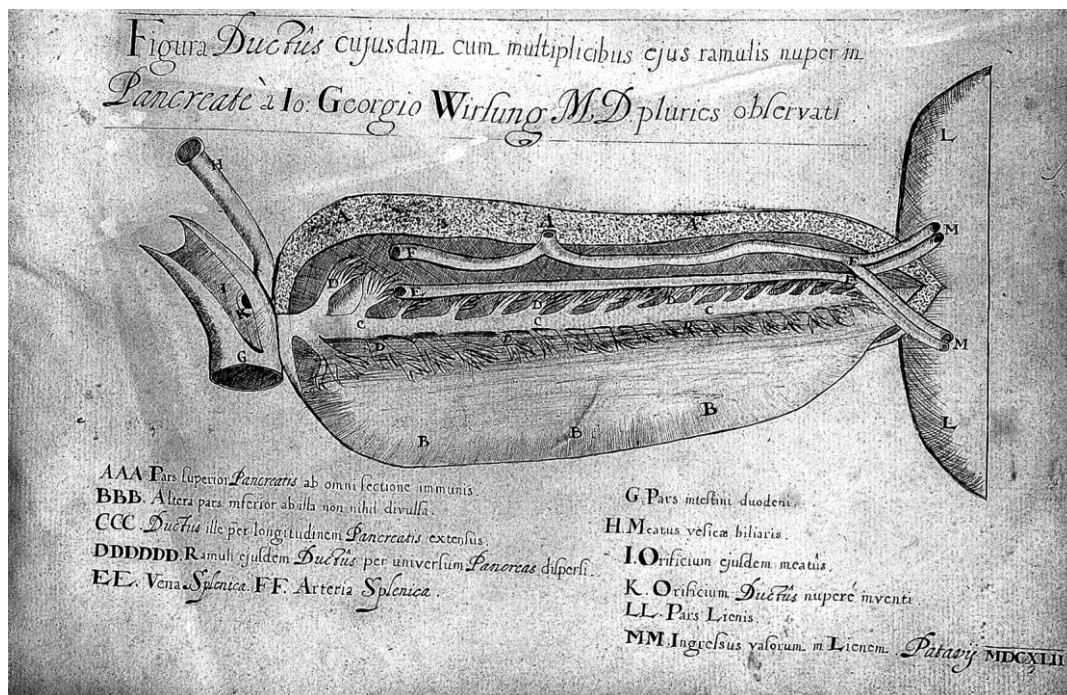 Figura Ductûs cujusdam cum multiplicibus ejus ramulis nuper in
Pancreate à Io: Georgio Wirsung M.D. pluries observati
H
L
A A A A
M
F
F
I
D
E
E
K
D
D
C
C
C
D
D
M
G
B
B
B
L
AAA Pars superior Pancreatis ab omni sectione immunis.
BBB. Altera pars inferior ab illa non nihil divulsa.
CCC. Ductus ille per longitudinem Pancreatis extensus.
DDDDDD. Ramuli ejusdem Ductûs per universum Pancreas dispersi.
EE. Vena Splenica. FF. Arteria Splenica.
G. Pars intestini duodeni.
H. Meatus vesicæ biliaris.
I. Orificium ejusdem meatûs.
K. Orificium Ductûs nuperé inventi.
LL. Pars Lienis.
MM. Ingressus vasorum in Lienem. Patavij MDCXLII